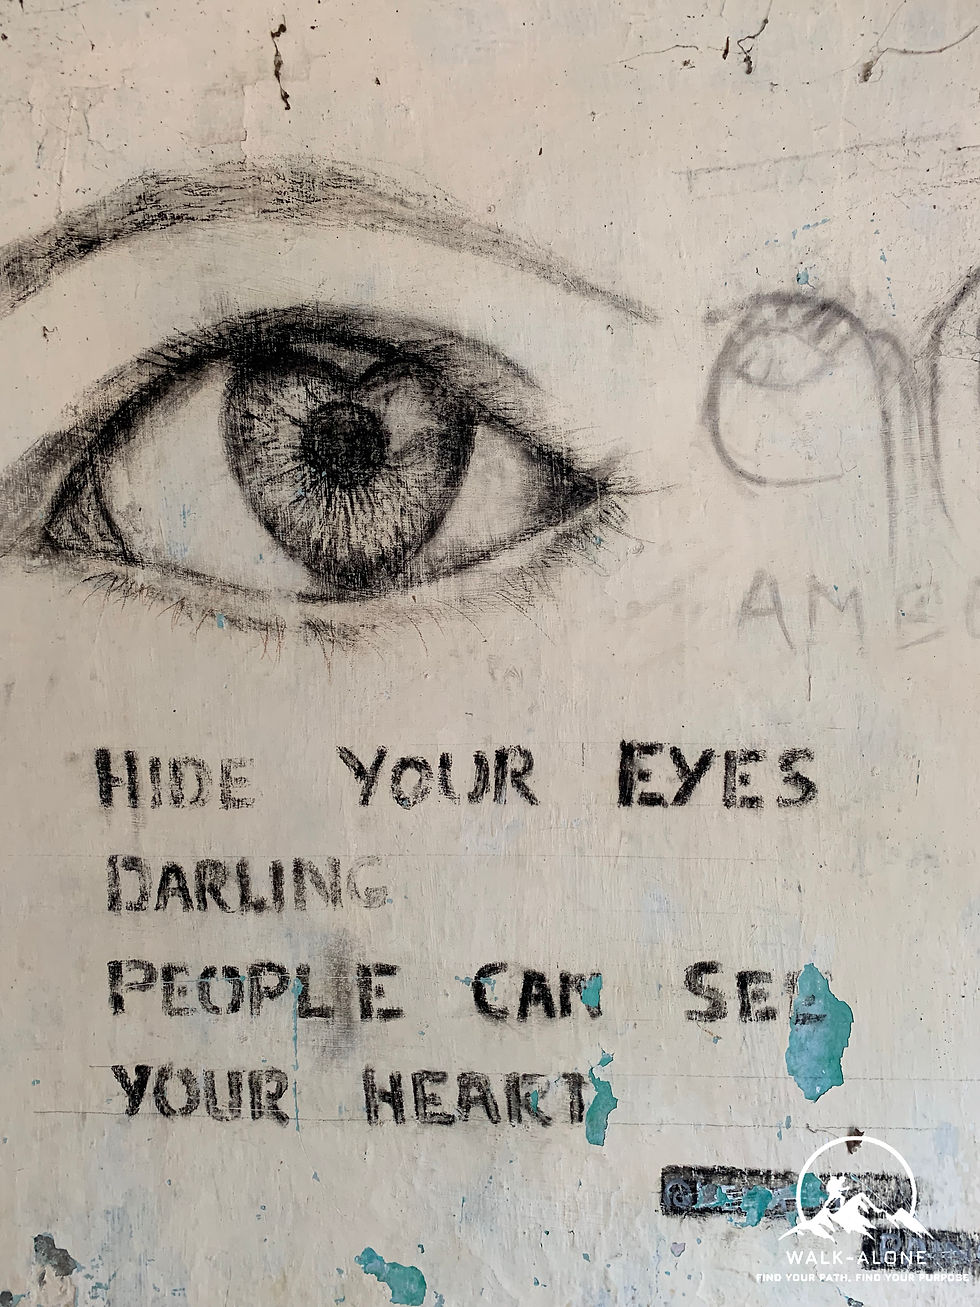 AMS
HIDE YOUR EYES
DARLING
PEOPLE CAN SEE
YOUR HEART
WALK-ALONE
FIND YOUR PATH, FIND YOUR PURPOSE